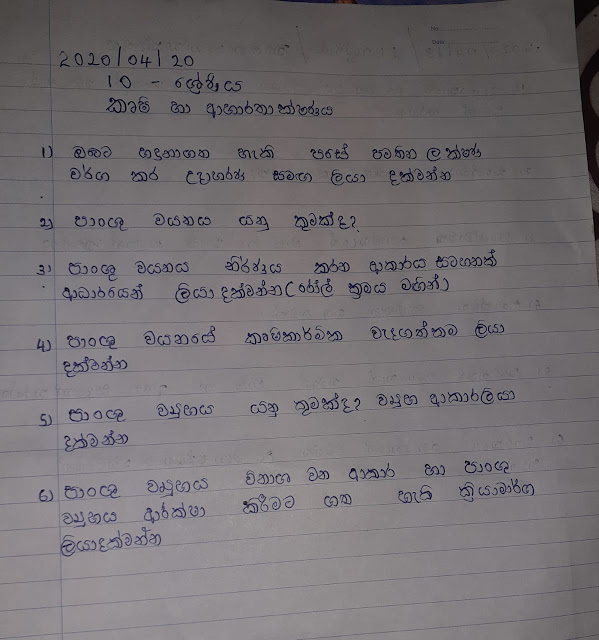 2020/04/20
10 - ශ්‍රේණිය
කෘෂි හා ආහාරතාක්ෂණය
1) ඔබට හදුනාගත හැකි පසේ පවතින ලක්ෂණ
වර්ග කර උදාහරණ සමග ලියා දක්වන්න
2) පාංශු වයනය යනු කුමක්ද?
3) පාංශු වයනය නිර්ණය කරන ආකාරය සටහනක්
ආධාරයෙන් ලියා දක්වන්න (රෝල් ක්‍රමය මගින්)
4) පාංශු වයනයේ කෘෂිකාර්මික වැදගත්කම ලියා
දක්වන්න
5) පාංශු ව්‍යුහය යනු කුමක්ද? ව්‍යුහ ආකාරලියා
දක්වන්න
6) පාංශු ව්‍යුහය විනාශ වන ආකාර හා පාංශු
ව්‍යුහය ආරක්ෂා කිරීමට ගත හැකි ක්‍රියාමාර්ග
ලියාදක්වන්න